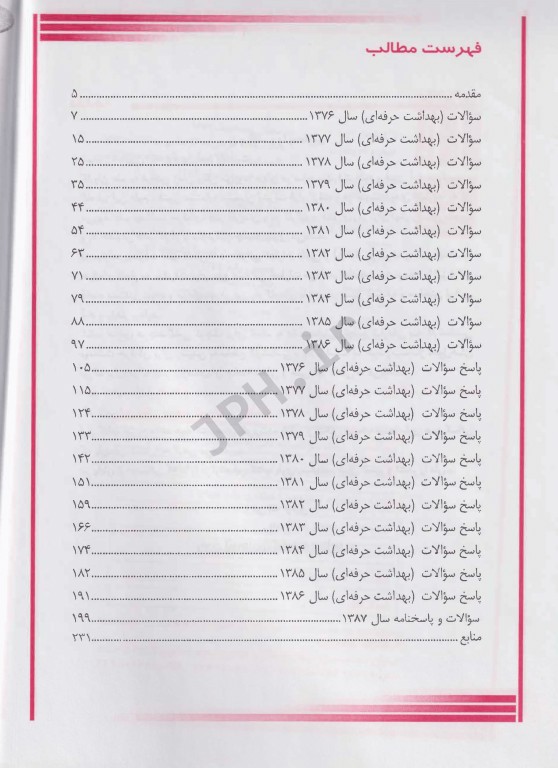 فهرست مطالب
مقدمه ........ ۵
سؤالات (بهداشت حرفه‌ای) سال ۱۳۷۶ ........ ۷
سؤالات (بهداشت حرفه‌ای) سال ۱۳۷۷ ........ ۱۵
سؤالات (بهداشت حرفه‌ای) سال ۱۳۷۸ ........ ۲۵
سؤالات (بهداشت حرفه‌ای) سال ۱۳۷۹ ........ ۳۵
سؤالات (بهداشت حرفه‌ای) سال ۱۳۸۰ ........ ۴۴
سؤالات (بهداشت حرفه‌ای) سال ۱۳۸۱ ........ ۵۴
سؤالات (بهداشت حرفه‌ای) سال ۱۳۸۲ ........ ۶۳
سؤالات (بهداشت حرفه‌ای) سال ۱۳۸۳ ........ ۷۱
سؤالات (بهداشت حرفه‌ای) سال ۱۳۸۴ ........ ۷۹
سؤالات (بهداشت حرفه‌ای) سال ۱۳۸۵ ........ ۸۸
سؤالات (بهداشت حرفه‌ای) سال ۱۳۸۶ ........ ۹۷
پاسخ سؤالات (بهداشت حرفه‌ای) سال ۱۳۷۶ ........ ۱۰۵
پاسخ سؤالات (بهداشت حرفه‌ای) سال ۱۳۷۷ ........ ۱۱۵
پاسخ سؤالات (بهداشت حرفه‌ای) سال ۱۳۷۸ ........ ۱۲۴
پاسخ سؤالات (بهداشت حرفه‌ای) سال ۱۳۷۹ ........ ۱۳۳
پاسخ سؤالات (بهداشت حرفه‌ای) سال ۱۳۸۰ ........ ۱۴۲
پاسخ سؤالات (بهداشت حرفه‌ای) سال ۱۳۸۱ ........ ۱۵۱
پاسخ سؤالات (بهداشت حرفه‌ای) سال ۱۳۸۲ ........ ۱۵۹
پاسخ سؤالات (بهداشت حرفه‌ای) سال ۱۳۸۳ ........ ۱۶۶
پاسخ سؤالات (بهداشت حرفه‌ای) سال ۱۳۸۴ ........ ۱۷۴
پاسخ سؤالات (بهداشت حرفه‌ای) سال ۱۳۸۵ ........ ۱۸۲
پاسخ سؤالات (بهداشت حرفه‌ای) سال ۱۳۸۶ ........ ۱۹۱
سؤالات و پاسخنامه سال ۱۳۸۷ ........ ۱۹۹
منابع ........ ۲۳۱
JPH.ir